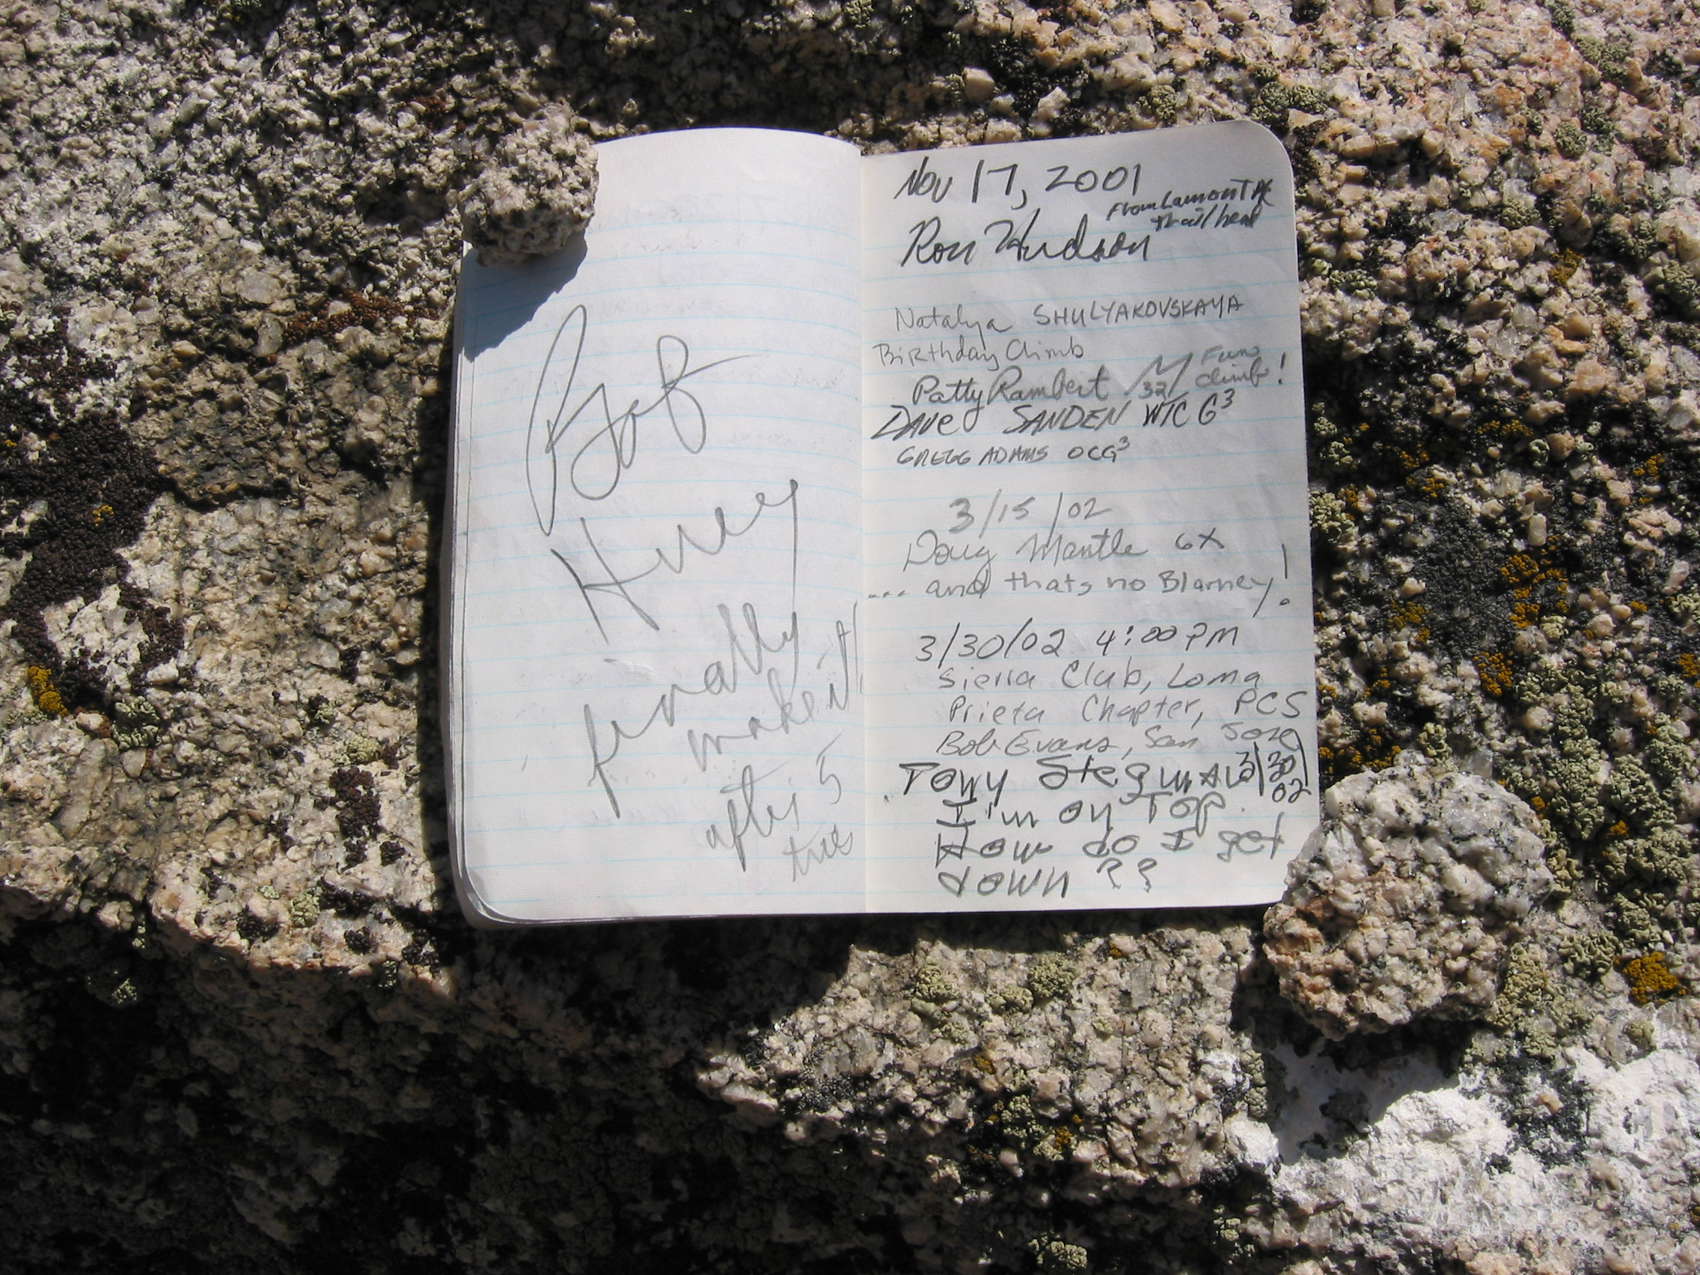 Bob
Huey
finally
make it!
after 5
tries
Nov 17, 2001
From Lamont Pk
trail head
Ron Hudson
Natalya SHULYAKOVSKAYA
Birthday Climb
Patty Rambert 32 Fun
climb!
DAVE SANDEN WTC G3
GREGG ADAMS OCG3
3/15/02
Doug Mantle 6X
... and thats no Blarney!
3/30/02 4:00 PM
Sierra Club, Loma
Prieta Chapter, PCS
Bob Evans, San Jose
Tony Stegman 3/30/02
I'm on Top
How do I get
down ??